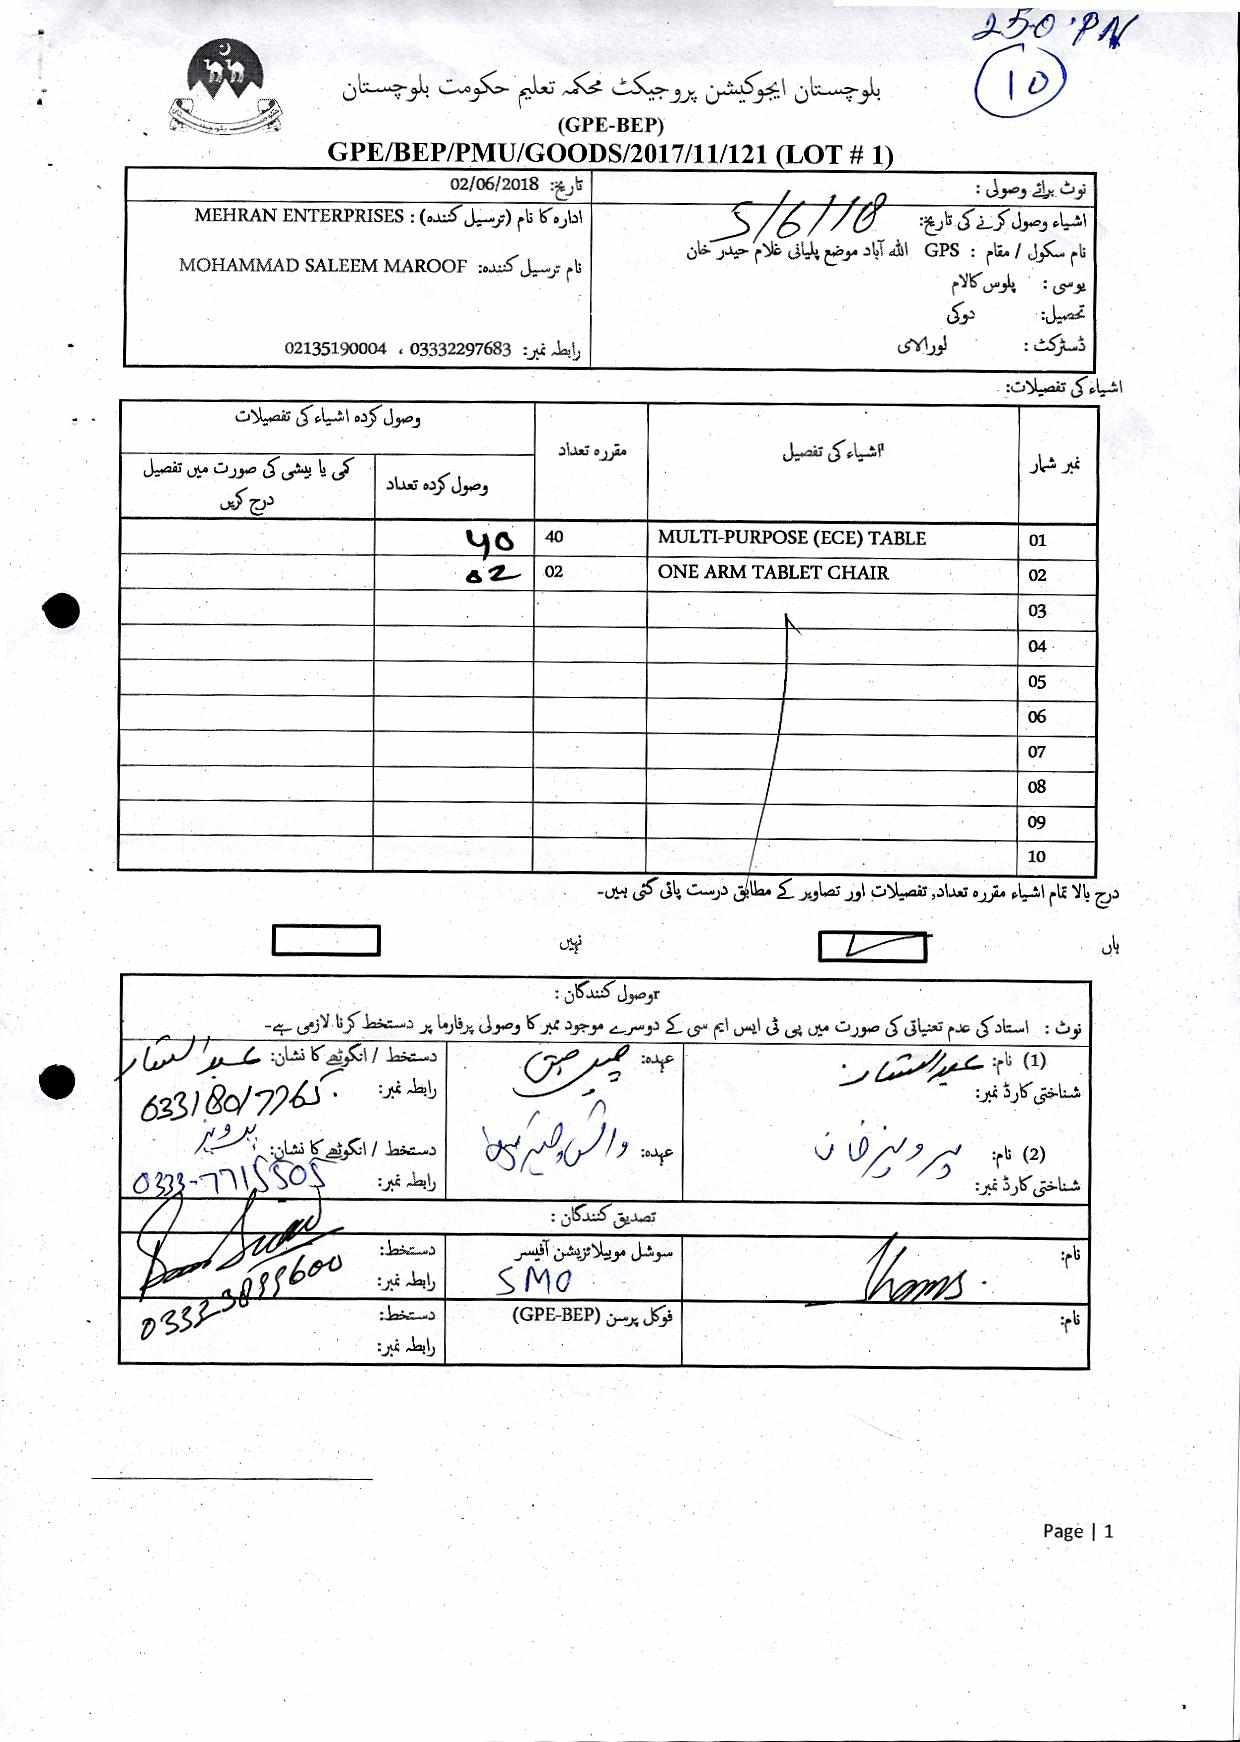 250 PN
10
بلوچستان ایجوکیشن پروجیکٹ محکمہ تعلیم حکومت بلوچستان
(GPE-BEP)
GPE/BEP/PMU/GOODS/2017/11/121 (LOT # 1)
نوٹ برائے وصولی :
اشیاء وصول کرنے کی تاریخ: 5/6/18
نام سکول / مقام : GPS اللہ آباد موضع پلیانی غلام حیدر خان
یوسی : پلوس کالام
تحصیل: دوکی
ڈسٹرکٹ : لورالای
تاریخ: 02/06/2018
ادارہ کا نام (ترسیل کنندہ) : MEHRAN ENTERPRISES
نام ترسیل کنندہ: MOHAMMAD SALEEM MAROOF
رابطہ نمبر: 03332297683 ، 02135190004
اشیاء کی تفصیلات:
نمبر شمار اشیاء کی تفصیل مقررہ تعداد وصول کردہ اشیاء کی تفصیلات
وصول کردہ تعداد کمی یا بیشی کی صورت میں تفصیل درج کریں
01 MULTI-PURPOSE (ECE) TABLE 40 40
02 ONE ARM TABLET CHAIR 02 02
03
04
05
06
07
08
09
10
درج بالا تمام اشیاء مقررہ تعداد, تفصیلات اور تصاویر کے مطابق درست پائی گئی ہیں۔
ہاں نہیں
وصول کنندگان :
نوٹ : استاد کی عدم تعنیاتی کی صورت میں پی ٹی ایس ایم سی کے دوسرے موجود ممبر کا وصولی پرفارما پر دستخط کرنا لازمی ہے۔
(1) نام: عبدالستار عہدہ: دستخط / انگوٹھے کا نشان: عبدالستار
شناختی کارڈ نمبر: رابطہ نمبر: 03318017765
(2) نام: پرویز خان عہدہ: دستخط / انگوٹھے کا نشان: پرویز
شناختی کارڈ نمبر: رابطہ نمبر: 0333-7715505
تصدیق کنندگان :
نام: سوشل موبیلائزیشن آفیسر دستخط:
SMO رابطہ نمبر: 03323899600
نام: فوکل پرسن (GPE-BEP) دستخط:
رابطہ نمبر:
Page | 1